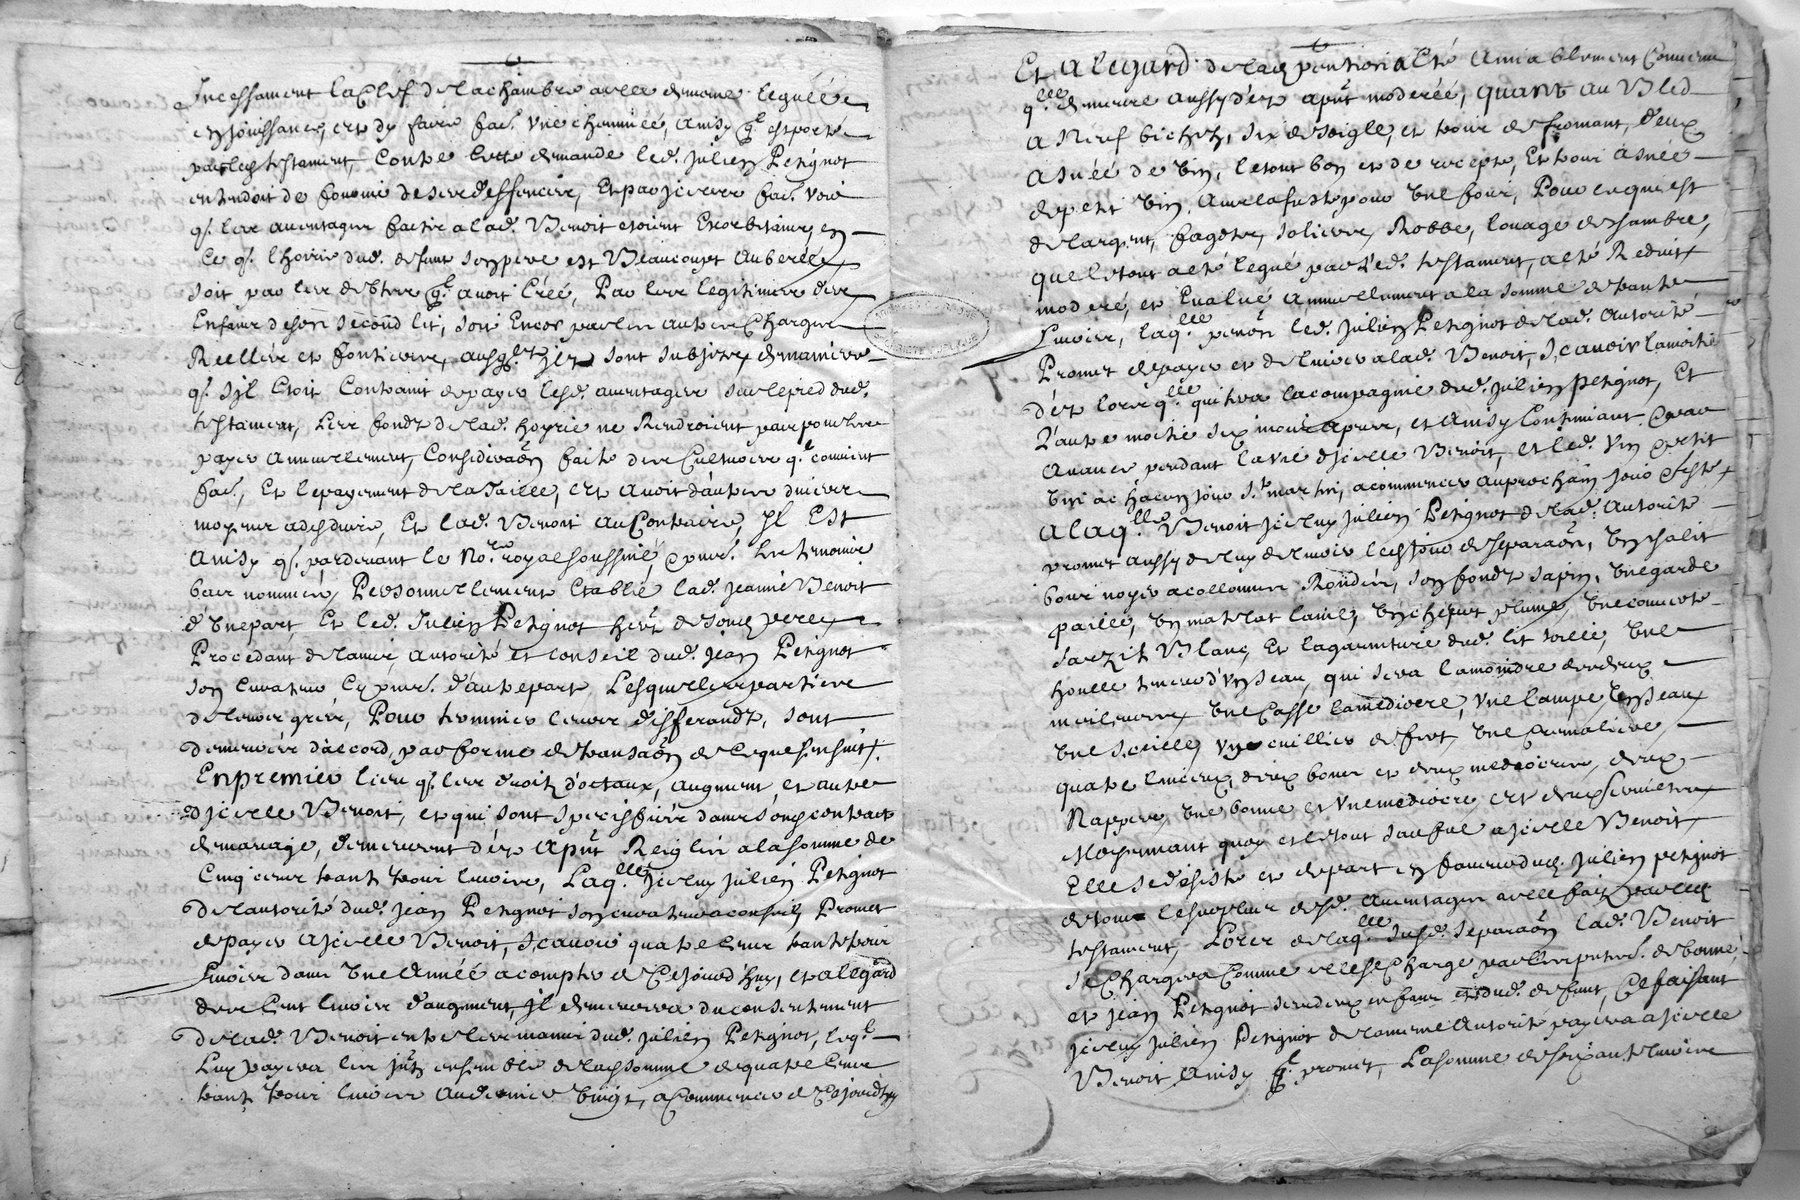 Incessament la Clef de la chambre a elle demeure leguée
en jouissance, et dy faire fac. une cheminée, Ainsy q.l est porté
par led. testament, Contre cette demande led. Julien Petignot
entendoit de fournir de ses deffences, Et par icelles fac. voir
q. les avantages faits a lad. Benoit etoient Exorbitants, en
ce q. lhoirie dud. defunt son pere est Beaucoup Auberée
soit par les debtes q.l avoit Créé, Par les legitimes des
Enfans de son second lit, soit Encor par les autres Charges
Reelles et foncieres, ausq.lz Ilz sont subjetz de maniere
q. Sil Etoit Contraint de payer lesd. avantages sur le pied dud.
testament, Les fondz de lad. hoyrie ne Rendroient pas pour les
payer Annuellement, Consideraõn faite des Cultures q.l convient
fac., Et le payement de la Taille, Et avoit dautres divers
moyens a desduire, Et lad. Benoit au Contraire, Il Est
Ainsy q. pardevant le No.re royal soussiné, et pnt. les temoins
bas nommés, Personnellement Etablie lad. Jeanne Benoit
d'une part Et led. Julien Petignot her.t de son d. pere
Procedant de l'avis, autorité et conseil dud. Jean Petignot
son curateur cy pnt. d'autre part, Lesquelles parties
de leurs grés, Pour terminer leurs differandz, sont
demeurées daccord, par forme de transaõn de ce que sensuit.
En premier lieu q. les droitz doctaux, augment, et autres
d'icelle Benoit, et qui sont specifiées dans son contract
de mariage, demeurent dez a pñt Reiglés a la somme de
Cinq cens trante trois livres, Laq.lle Iceluy Julien Petignot
de l'autorité dud. Jean Petignot son curateur a conseil, Promet
de payer a Icelle Benoit, scavoir quatre cens trante trois
livres dans une Année a compter de Cejourd'huy, et a legard
des Cent livres d'augment, Il demeurera du consentement
de lad. Benoit entre les mains dud. Julien Petignot, leq.l
Luy payera les jntz ensemble de la somme de quatre cens
trante trois livres Au denier vingt, a Commencer de Cejourdhuy
Et a legard de lad. pention a Eté Amiablement Convenu
q.lle demeure aussy dez a pñt moderée, quant au Bled
a Neuf bichetz, six de seigle, et trois de fromant, deux
Asnées de vin, le tout bon et de recepte, Et trois Asnées
de petit vin, avec la fuste pour une fois, Pour ce qui est
de largent, fagotz, soliers, Robbe, louage de chambre,
que le tout a eté legué par led. testament, a eté Reduit
moderé, et Evalué Annuellement a la somme de trante
livres, laq.lle pention led. Julien Petignot de lad. Autorité
Promet de payer et delivrer a lad. Benoit, scavoir la moitié
dez lors q.lle quittera la compagnie dud. Julien Petignot, Et
L'autre moitié six mois apres, et Ainsy Continuant par
Avance pendant la vie d'icelle Benoit, Et led. vin et petit
vin a chacun jour S.t martin, a commencer au prochain jour et feste
A laq.lle Benoit Iceluy Julien Petignot de lad. Autorité
promet aussy de luy delivrer led. jour de separaõn, un chalit
bois noyer a collonnes Rondes, son fondz sapin, une garde
paille, un matelat laine, un chevet plume, une couverte
Blanc, Et la garniture dud. lit toille, une
tenent d'un seau, qui sera la moindre des deux
meilleures une Casse la mediocre, une lampe, un seau
une seille, un cuillier de fert, une Cremaliere,
quatre linceux, deux bons et deux mediocres, deux
Nappes, une bonne et une mediocre, et deux serviettes
Moyennant quoy et le tout sauf a Icelle Benoit
Elle se desiste et depart en faveur dud. Julien petignot
de tous le surplus desd. Avantages a elle faitz par led.
testament, Lors de laq.lle susd. separaõn lad. Benoit
se Chargera Comme elle se Charge par les pntes. de benne,
et Jean Petignot ses deux enfans et dud. defunt, Ce faisant
Iceluy Julien Petignot de la meme Autorité payera a Icelle
Benoit Ainsy q.l promet, La somme de soixante livres